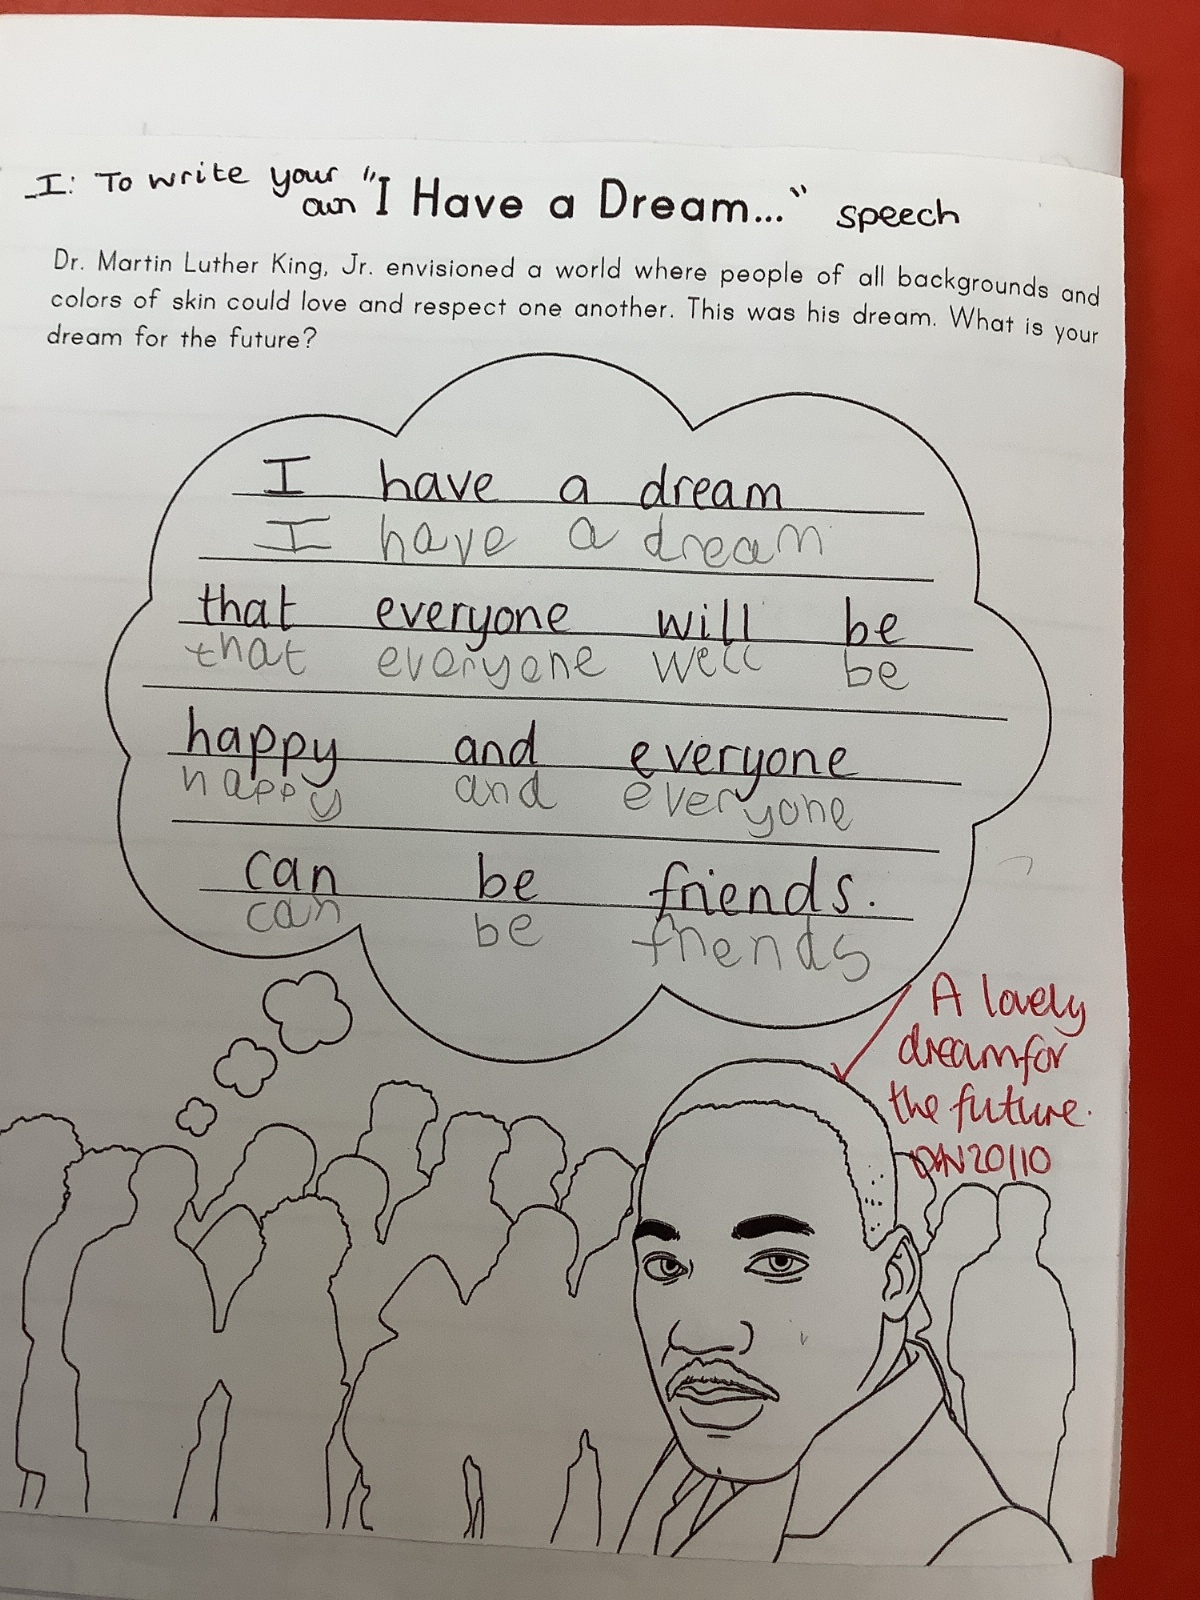 I: To write your own "I Have a Dream..." speech
Dr. Martin Luther King, Jr. envisioned a world where people of all backgrounds and
colors of skin could love and respect one another. This was his dream. What is your
dream for the future?
I have a dream
I have a dream
that everyone will be
that everyone well be
happy and everyone
happy and everyone
can be friends.
can be friends
A lovely
dream for
the future.
20/10